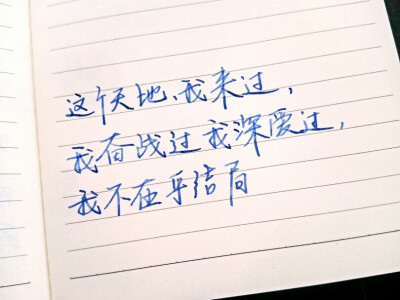 这个天地、我来过，
我奋战过 我深爱过，
我不在乎结局